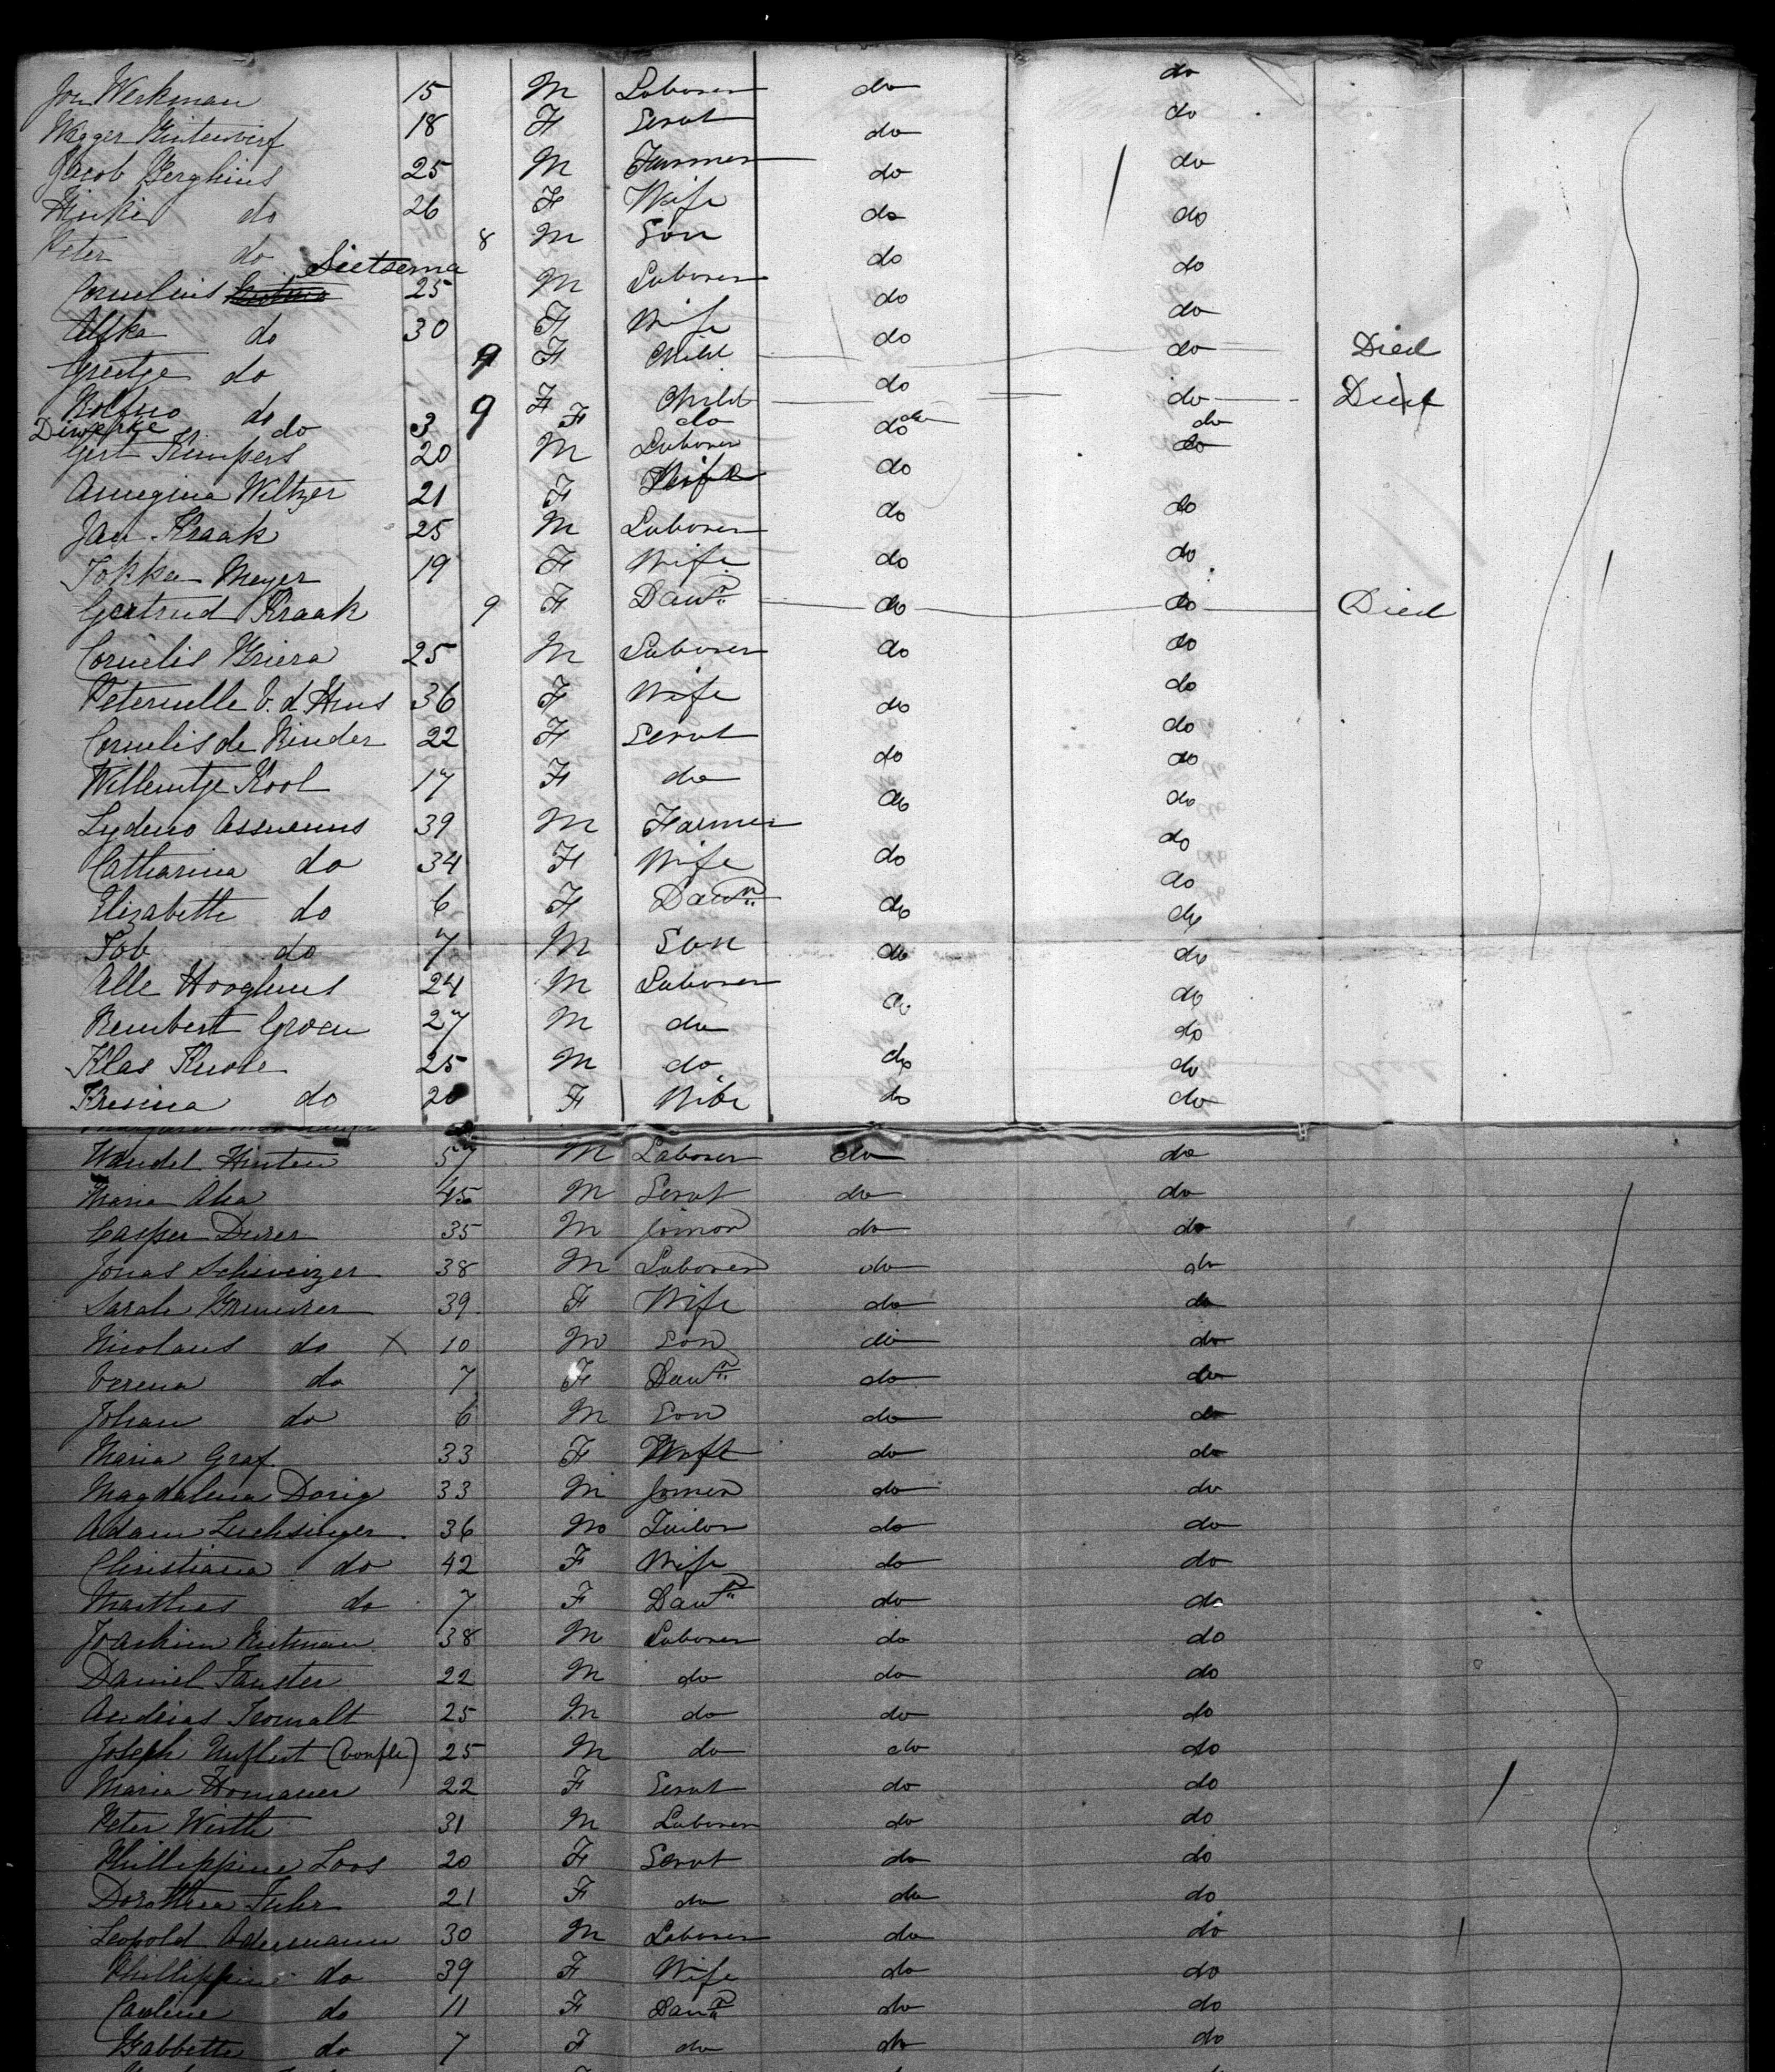 Jon Werkman 15 M Laborer do do
18 F Servt do do
Jacob Berghius 25 M Farmer do do
do 26 F Wife do do
Peter do 8 M Son do do
Sietsema
Cornelius 25 M Laborer do do
Afka do 30 F Wife do do
Greetje do 9 F Child do do Died
do 9 F Child do do Died
Dirverke do 3 F do do do
Gert Kempers 20 M Laborer do do
Annegina Weltzer 21 F Wife do do
Jan Kraak 25 M Laborer do do
Fokka Meyer 19 F Wife do do
Gertrud Kraak 9 F Daur do do Died
Cornelis Briera 25 M Laborer do do
Peternelle V. d Hius 36 F Wife do do
Cornelis de Rinder 22 F Servt do do
Willemtje Kool 17 F do do do
Lydeno Assmanns 39 M Farmer do do
Catharina do 34 F Wife do do
Elizabeth do 6 F Daur do do
Job do 7 M Son do do
Alle Hooghuis 24 M Laborer do do
Rembert Groen 27 M do do do
Klas Knole 25 M do do do
Kresina do 20 F Wife do do
Wendel Hinten 57 M Laborer do do
Maria Aka 45 M Servt do do
Casper Durer 35 M do do
Jonas Schweizer 38 M Laborer do do
Sarah Brunner 39 F Wife do do
Nicolaus do X 10 M Son do do
Verena do 7 F Daur do do
Johan do 6 M Son do do
Maria Graf 33 F Wife do do
Magdalena Dorig 33 M do do
Adam Luchsinger 36 M Tailor do do
Christiana do 42 F Wife do do
Mathias do 7 F Daur do do
Joachim Rutman 38 M Laborer do do
Daniel Fauster 22 M do do do
Andreas 25 M do do do
Joseph 25 M do do do
Maria Homauer 22 F Servt do do
Peter Wirth 31 M Laborer do do
Phillippine Loos 20 F Servt do do
Dorothea Fuhr 21 F do do do
Leopold Adermann 30 M Laborer do do
Phillippine do 39 F Wife do do
Caroline do 11 F Daur do do
Babbette do 7 F do do do